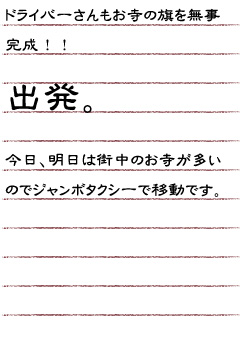 ドライバーさんもお寺の旗を無事
完成！！
出発。
今日、明日は街中のお寺が多い
のでジャンボタクシーで移動です。